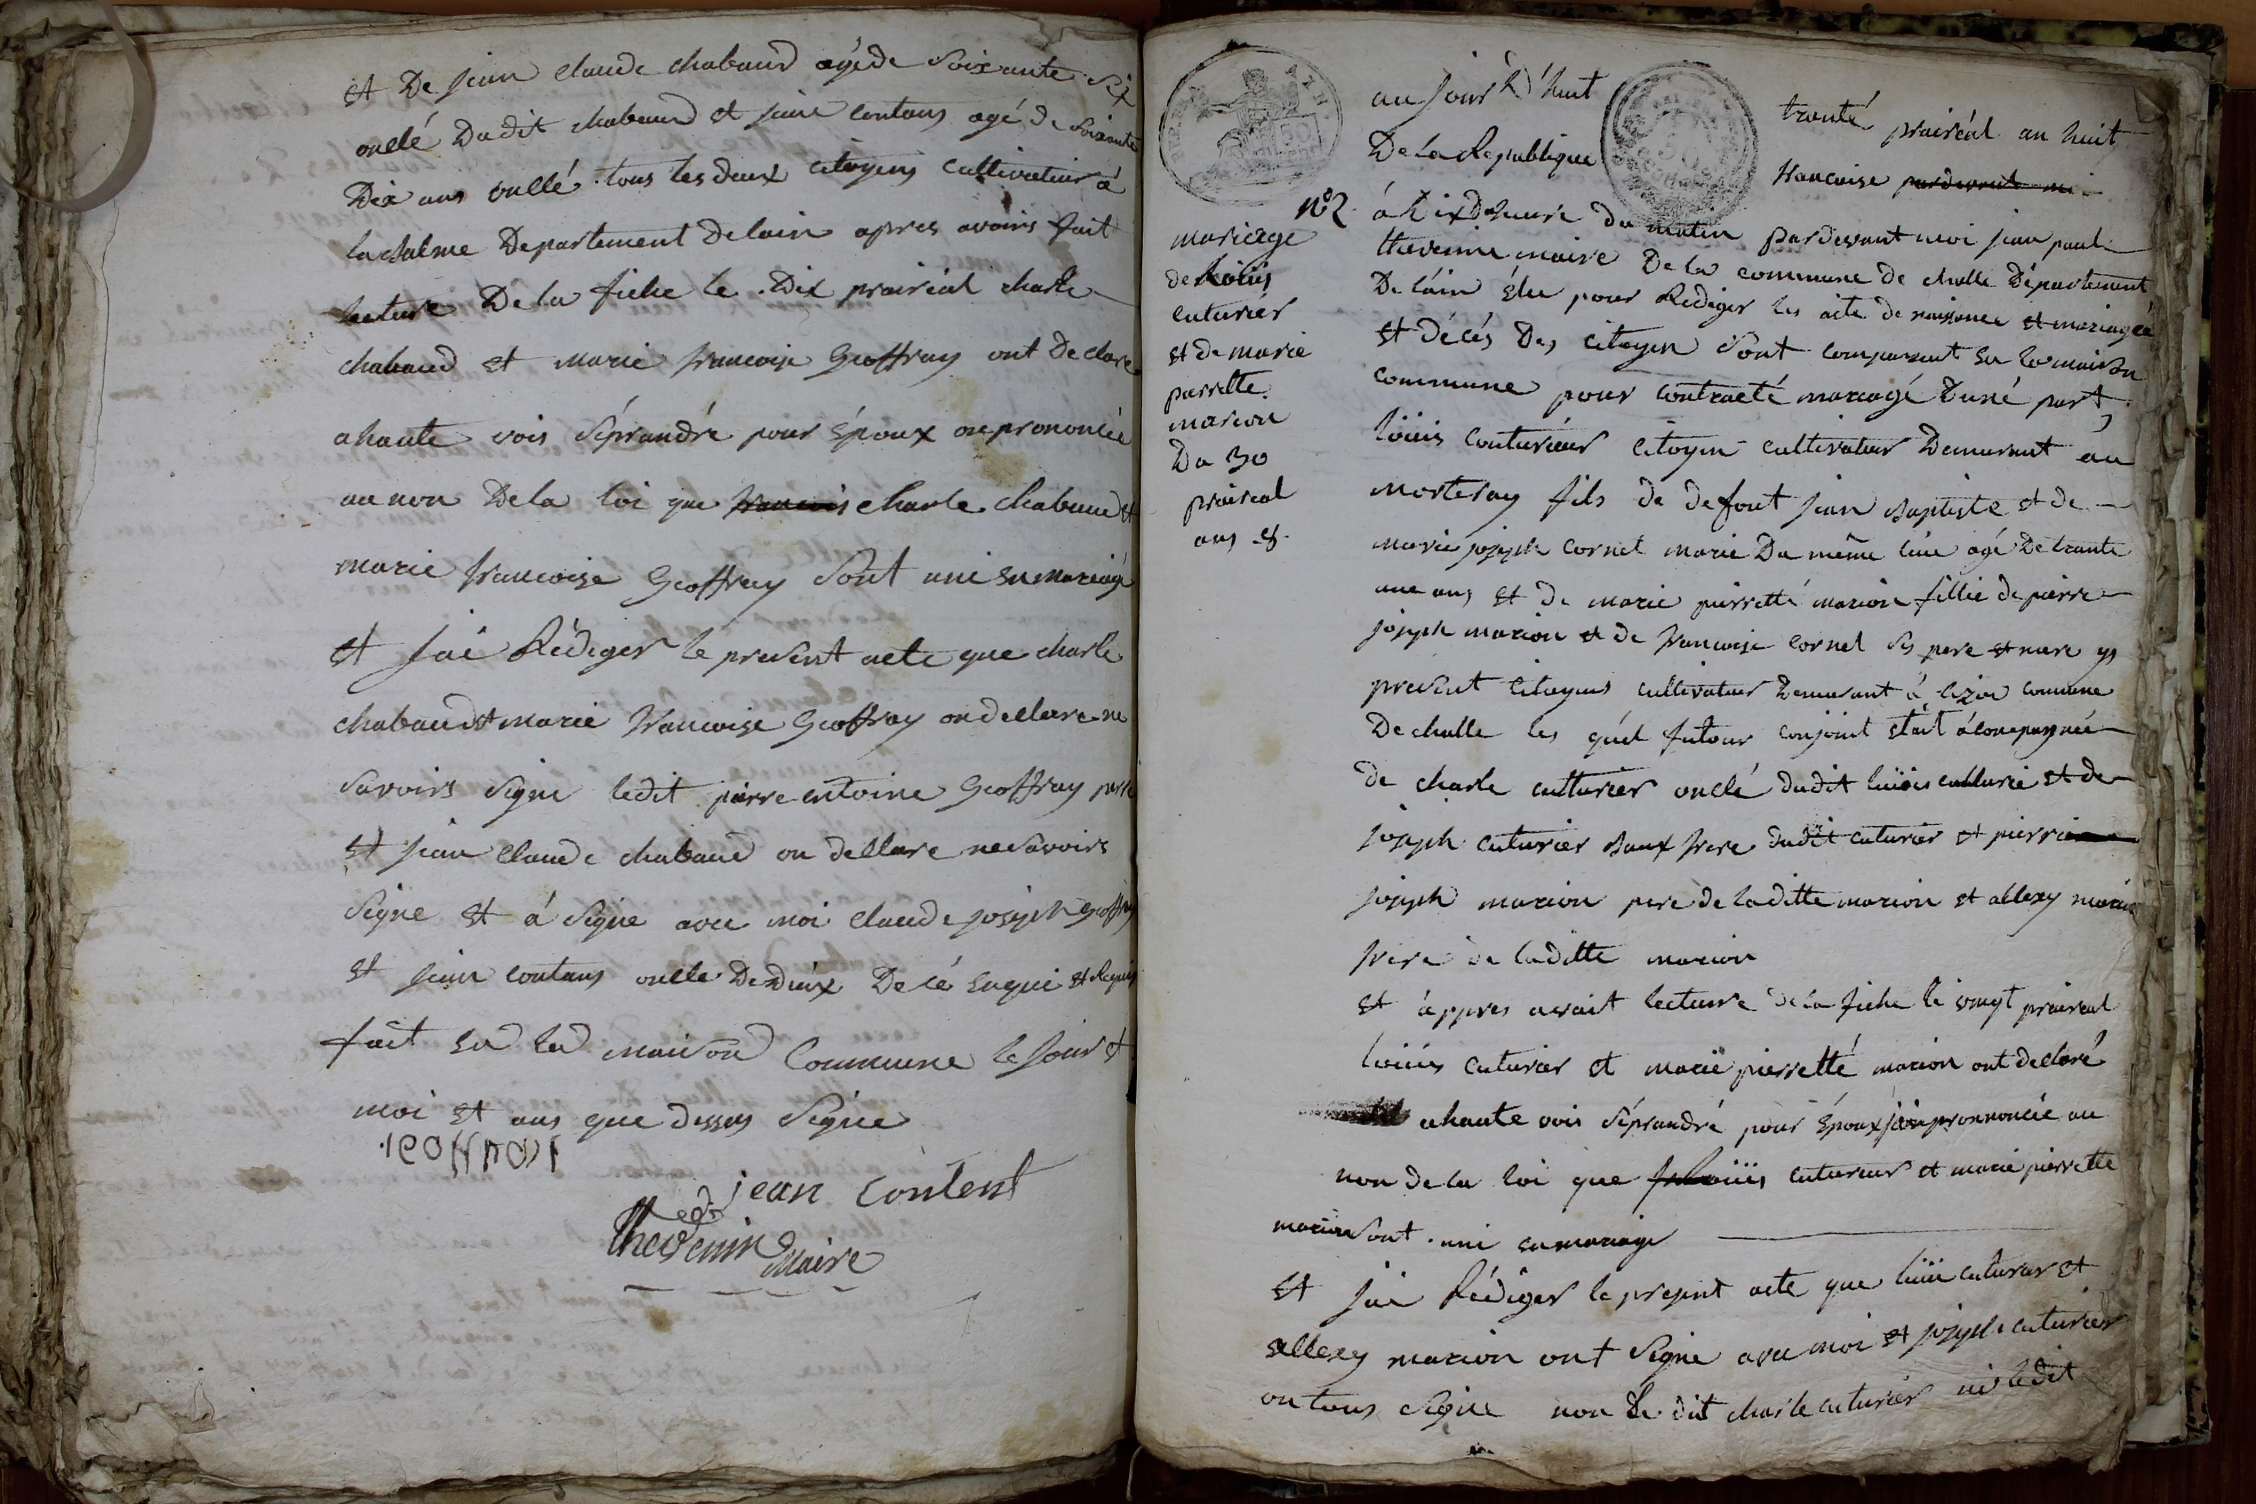 et De jean claude chabaud agé de soixante six
onclé Dudit chabaud et jean contans agé de soixante
Dix ans onclé tous les deux citoyens cultivateur á
la chalme Departement De lain apres avoirs fait
lecture De la fiche le Dix prairéal charle
chabaud et marie francoise Geoffray ont Declare
ahaute vois séprandré pour époux on prononcée
au non De la loi que francois charle chabaud et
marie francoise Geoffray sont uni en mariage
et jai Rédiger le present acte que charle
chabaud et marie francoise Geoffray on declare ne
savoirs signe ledit pierre entoine Geoffray pere
et jean claude chabaud on declare ne savoirs
signe et á signe avec moi claude joseph Geoffray
et jean contans oncle De Deux De cé enqui et Requis
fait en la maison Commune le jour et
moi et ans que dessus signé
jean content
thevenin Maire
au jour D'huit
trenté prairéal an huit
De la Republique
francaise pardevant moi
nº 2
mariage
de loüis
cuturier
et de marie
parrette
marion
Du 30
prairéal
ans 8
á dix heure du matin pardevant moi jean paul
thevenin maire De la commune de challe Département
De láin élu pour Rediger les acte de naissance et mariage
et décés Des citoyen sont comparent en la maison
commune pour contracté mariagé D'uné part
loüis couturieur citoyen cultivateur Demeurant au
morteray fils de defout jean Baptiste et de
marie joseph cornet marie Du même lieu agé De trante
une ans et de marie pierretté marion fillie de pierre
joseph marion et de francoise cornet ses pere et mere
present citoyens cultivateur demeurant á commune
De challe les quél futour conjoint était ácompagnée
de charle cutturier onclé dudit loüis cutturié et de
joseph cuturier Baux frere dudit cuturier et pierre
joseph marion pere de la ditte marion et allexy marion
frere de laditte marion
et áppres avait lecture de la fiche le vingt prairéal
loüis cuturier et marie pierretté marion ont declaré
ahaute vois séprandré pour époux jai prononcée au
non de la loi que loüis cutureur et marie pierrette
marion sont uni en mariage
et jai Rédiger le present acte que loüi cuturier et
allexy marion ont signe avec moi et joseph cuturier
on tous signe non le dit charle cuturier ni ledit